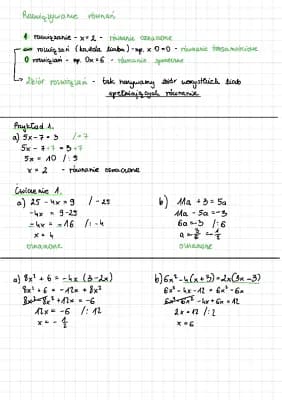 Rozwiązywanie równań
1 rozwiązanie - x = 2 - równanie oznaczone
∞ rozwiązań (każda liczba) - np. x·0=0 - równanie tożsamościowe
0 rozwiązań - np. 0x = 6 - równanie sprzeczne
Zbiór rozwiązań - tak nazywamy zbiór wszystkich liczb
spełniających równanie
Przykład 1.
a) 5x-7=3 /+7
5x-7+7=3+7
5x = 10 /:5
x = 2 - równanie oznaczone
Ćwiczenie 1.
a) 25-4x=9 /-25
-4x = 9-25
-4x = -16 /:-4
x = 4
oznaczone
b) 11a+3=5a
11a-5a=-3
6a=-3 /:6
a=-3/6=-1/2
oznaczone
a) 8x²+6=-4x(3-2x)
8x²+6=-12x+8x²
8x²-8x²+12x=-6
12x=-6 /:12
x=-1/2
b) 6x²-4(x+3)=2x(3x-3)
6x²-4x-12=6x²-6x
6x²-6x²-4x+6x=12
2x=12 /:2
x=6